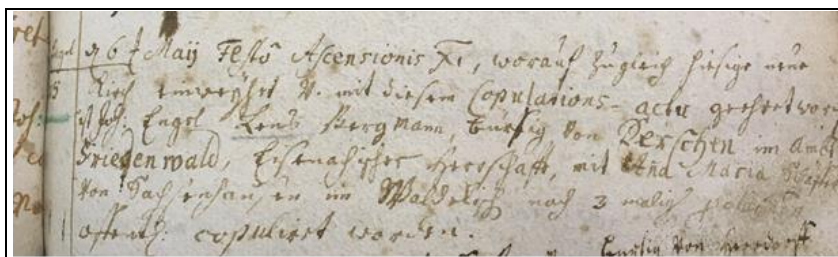 d 6 t Maij Festo Ascensionis Xi, worauf zugleich hiesige neue
Kirch eingeweyhet v. mit diesem Copulations-actu geehret wor
ist Joh: Engel Bergmann, bürtig von Derschen im Amt
Friedenwald, Eisenachischer Herrschafft, mit Ana Maria
von Sachsenhausen im Waldekisch nach 3 malig
offentl. copuliret worden.
bürtig von